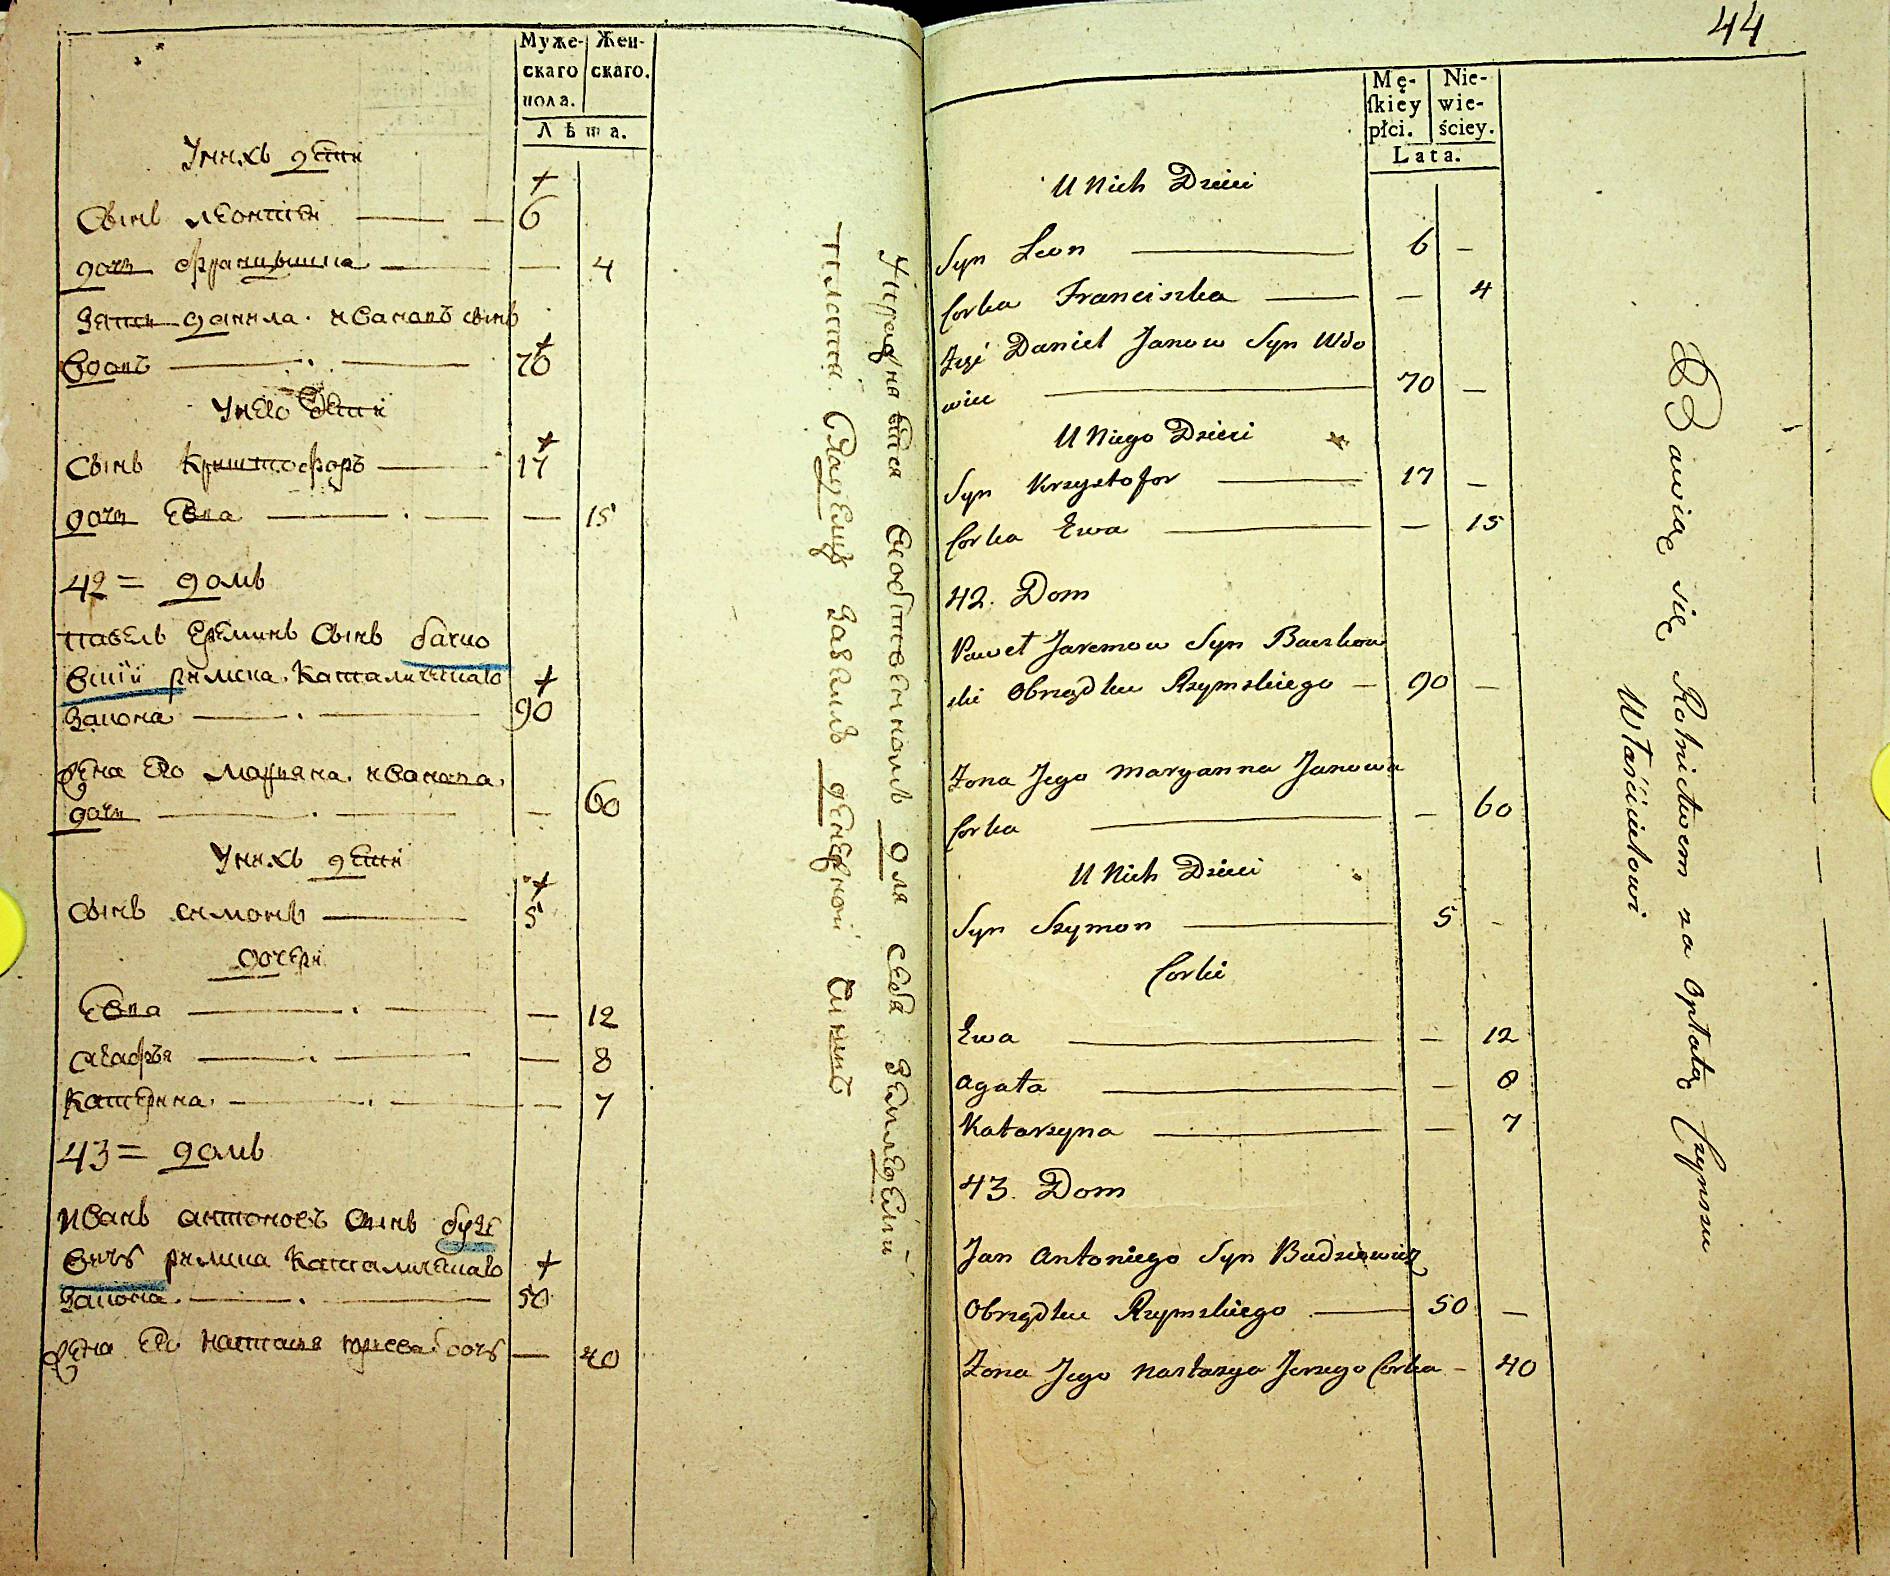 Муже- Жен-
скаго скаго.
пола.
Лѣта.
У нихъ дети
Сынъ леонтей 6
дочь францишка — 4
Зять данила ивановъ сынъ
вдовъ 70
У него дети
Сынъ криштофоръ 17
дочь Евва — 15
42 = домъ
павелъ еремин сынъ бачко
вский римска католическаго
закона 90
жена его марьяна иванова
дочь — 60
У нихъ дети
Сынъ симонъ 5
дочери
Евва — 12
агафья — 8
катерина — 7
43 = домъ
иванъ антоновъ сынъ будзе
вичъ римска католическаго
закона 50
жена его настасья юрьева дочь — 40
для себя земледелий
платит владелцу завсемъ денежной чиншъ
44
Mę- Nie-
ſkiey wie-
płci. ściey.
Lata.
U Nich Dzieci
Syn Leon 6 —
Corka Franciszka — 4
Zięć Daniel Janow Syn Wdo
wiec 70 —
U Niego Dzieci
Syn Krzysztofor 17 —
Corka Ewa — 15
42. Dom
Paweł Jaremow Syn Baczkow
ski Obrządku Rzymskiego — 90 —
Zona Jego Maryanna Janowa
Corka — 60
U Nich Dzieci
Syn Szymon 5 -
Corki
Ewa — 12
Agata — 8
Katarzyna — 7
43. Dom
Jan Antoniego Syn Budziewicz
Obrządku Rzymskiego 50 —
Zona Jego Nastazya Jerzego Corka — 40
Bawią się Rolnictwem za Opłatą Czynszu
Właścicielowi